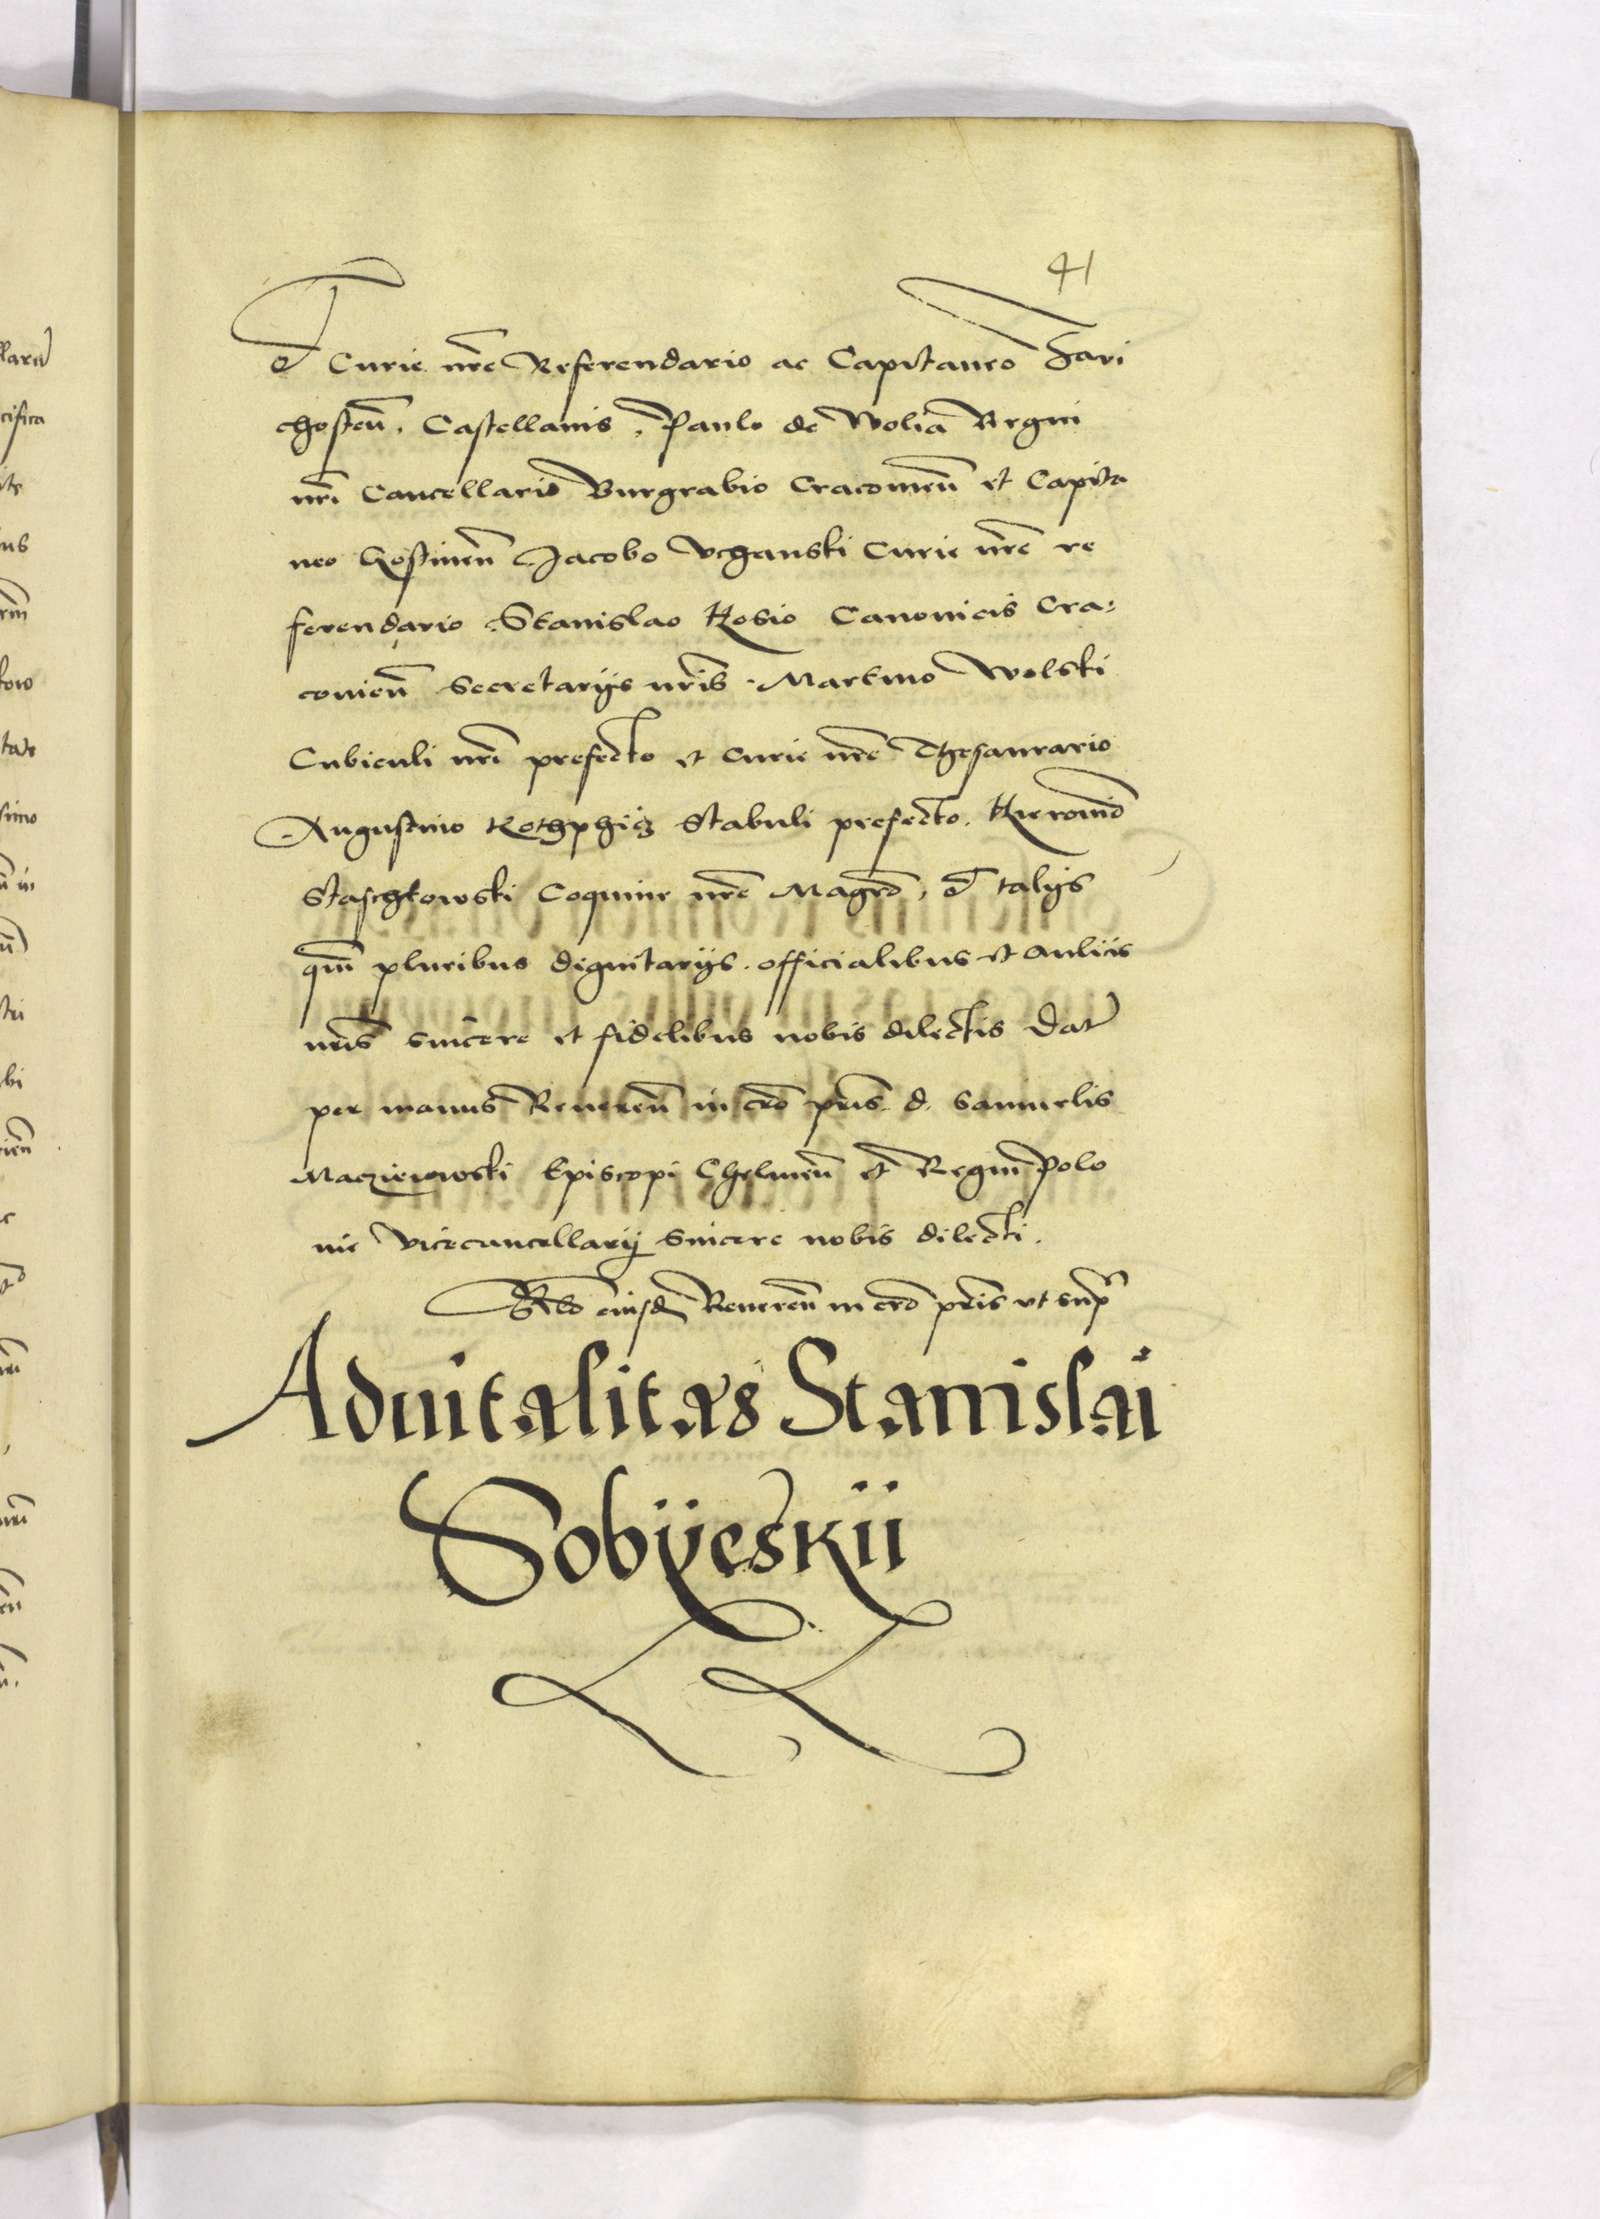 41
et Curie nre Referendario ac Capitaneo Zavi
chosten, Castellanis, Paulo de Wolia Regni
nri Cancellario Burgrabio Cracovien et Capita
neo Gostinen Jacobo Vchanski Curie nre re
ferendario Stanislao Hosio Canonicis Cra:
covien Secretarijs nris. Martino Wolski
Cubiculi nri prefecto et Curie nre Thesaurario
Augustino Kothphicz Stabuli prefecto. Hieronimo
Staschkowski Coquine nre Magro, et talijs
qm pluribus dignitarijs. officialibus et aulicis
nris sincere et fidelibus nobis dilectis Dat
per manus Reveren in cro pris. d. Samuelis
Macziewoski Episcopi Chelmen et Regni Polo
nie Vicecancellarij sincere nobis dilecti.
Rlo eiusd Reveren in cro pris ut sup
Advitalitas Stanislai
Sobyeskii